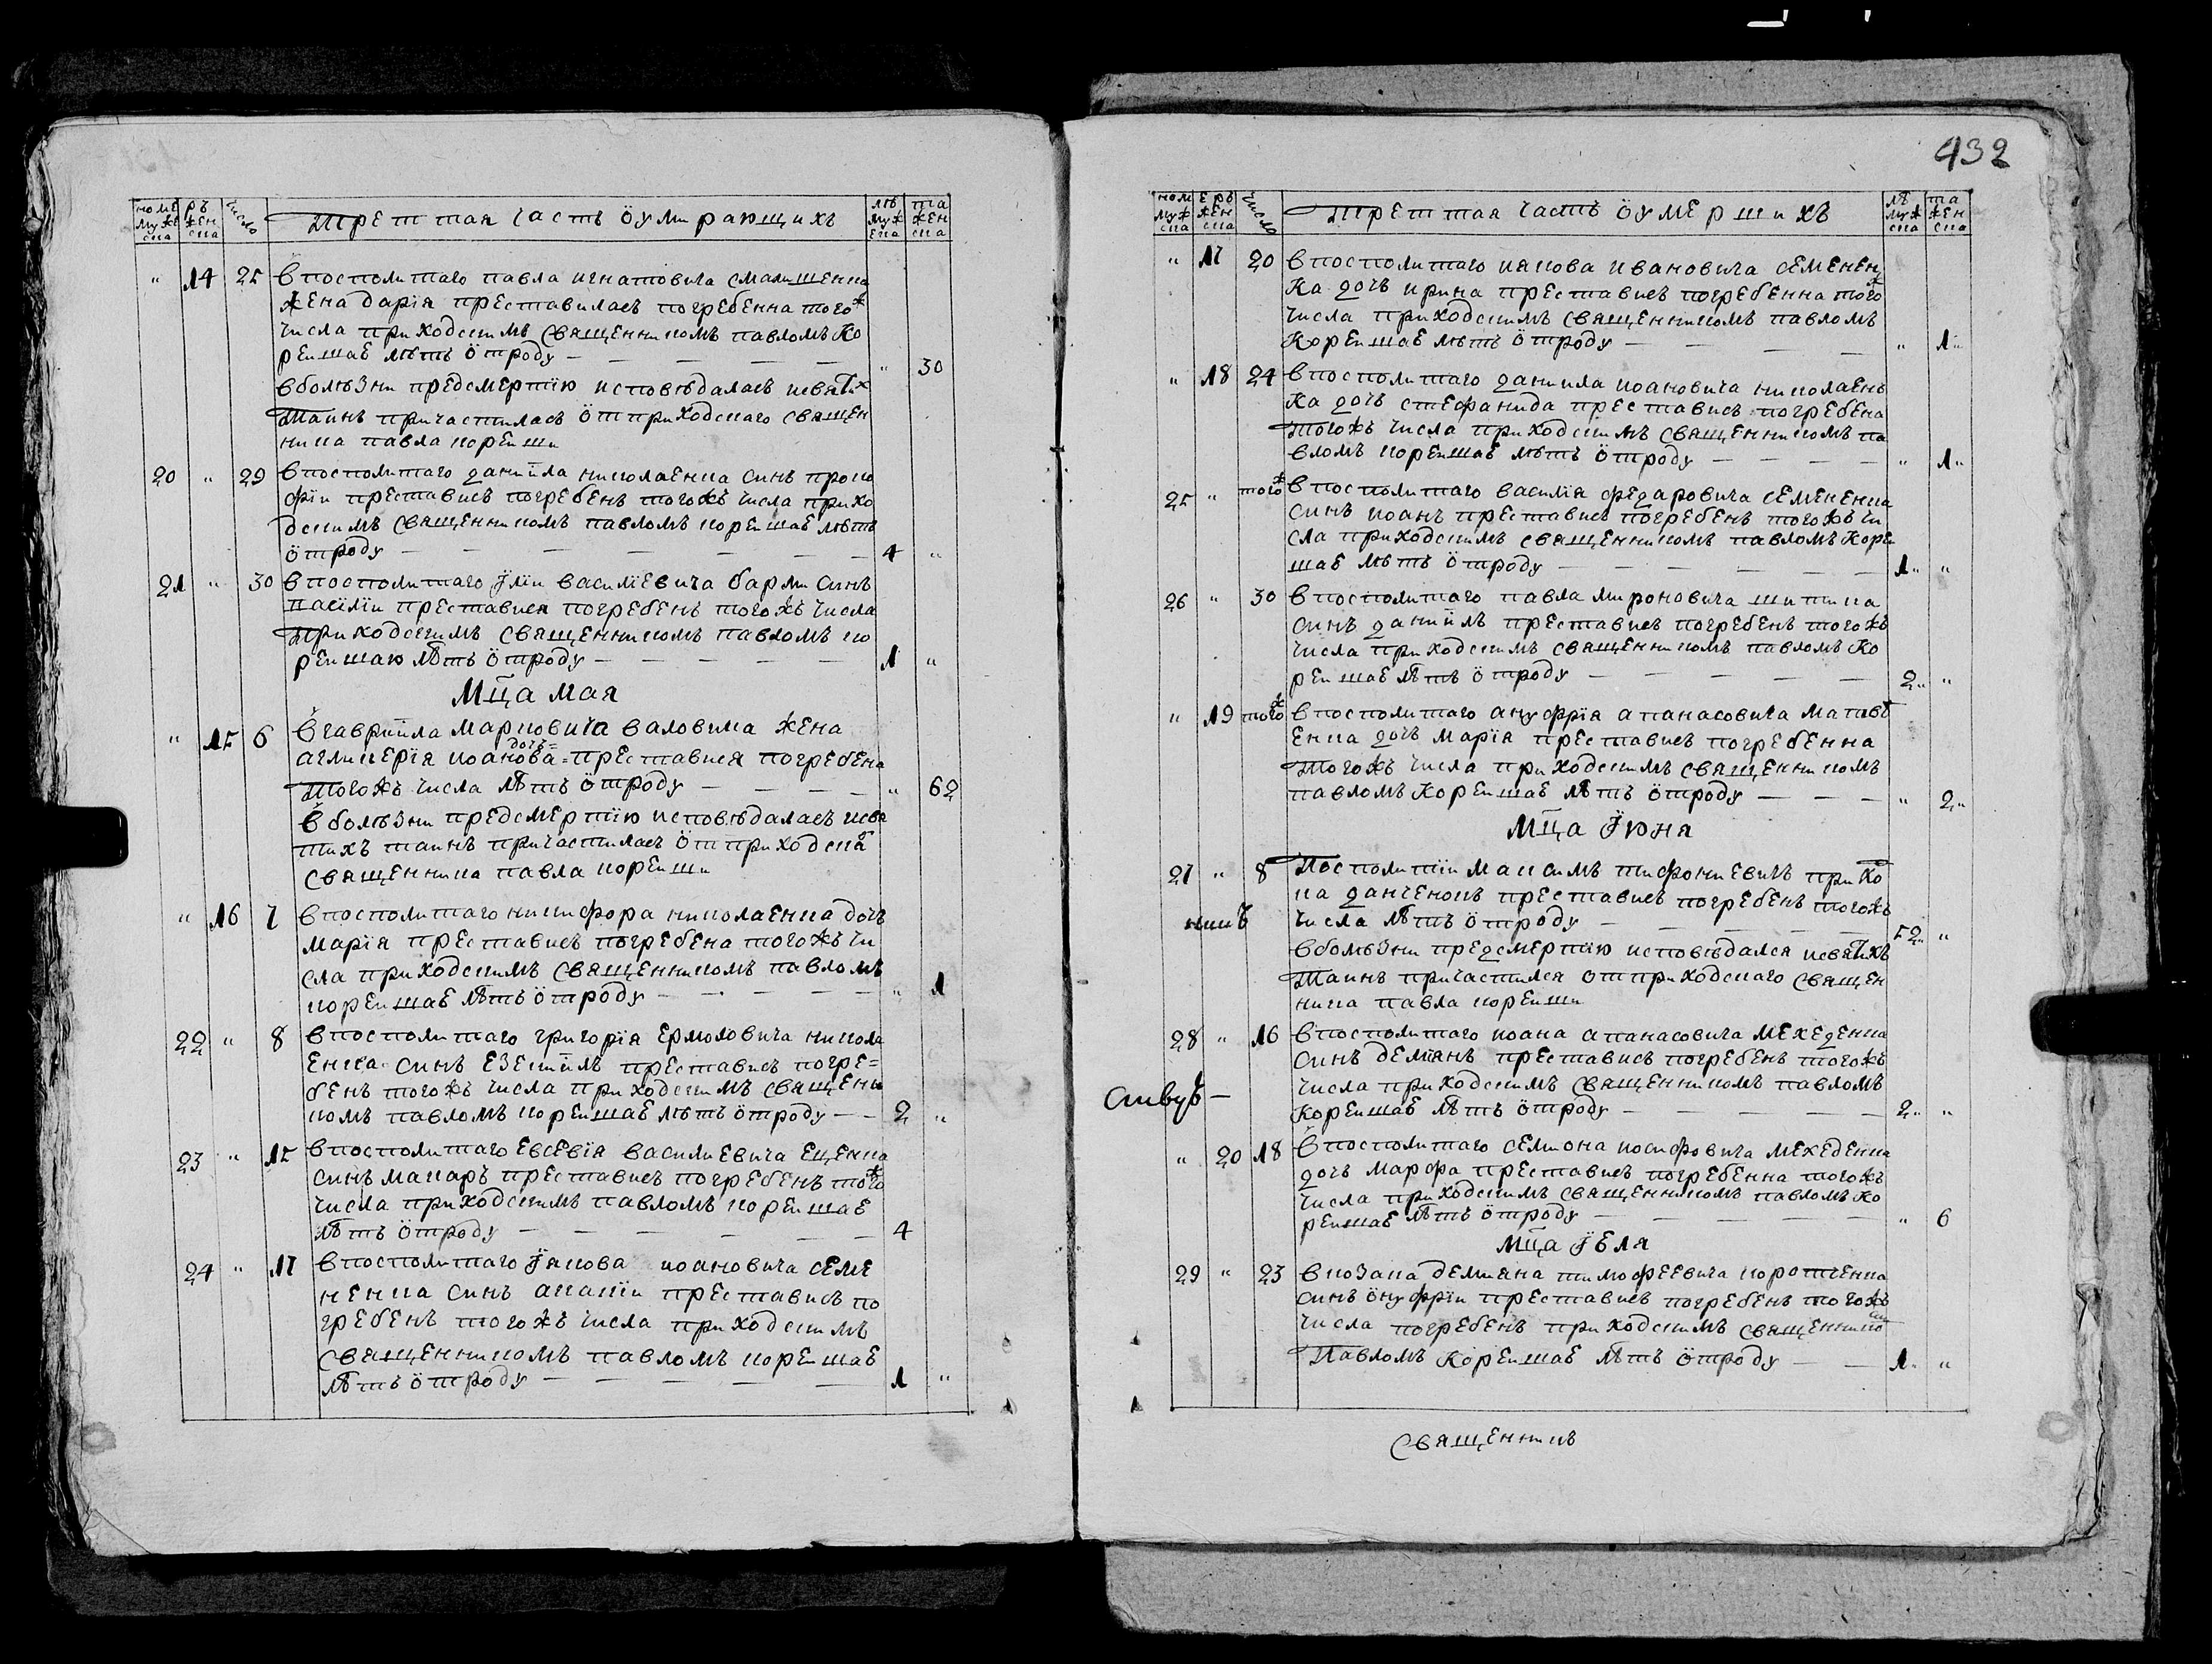 432
номе ръ число Треттая часть ŏ умирающихъ лѣ та
муже жен муж жен
ска ска ска ска
" 14 25 в посполитаго павла игнатовича смалишенка
жена дарїя преставилась погребенна того ж
числа приходскимъ священникомъ павломъ ко
рейшаѣ лѣтъ ŏтроду — — — — — " 30
в болѣзни предсмертїю исповѣдалась и свят х
таинъ причастилась ŏт приходскаго священ
ника павла корейши
20 " 29 в посполитаго даниїла николаенка синъ проко
фїй преставись погребенъ тогожъ числа прихо
дскимъ священникомъ павломъ корейшаѣ лѣтъ
ŏтроду — — — — — — — 4 "
21 " 30 в посполитаго їлїи василїевича барми синъ
васїлїй преставися погребенъ тогожъ числа
приходскимъ священникомъ павломъ ко
рейшаю лѣтъ ŏтроду — — — — — 1 "
Мца мая
" 15 6 в гаврїила марковича валовика жена
агликерїя иоанова дочь= преставися погребена
тогожъ числа лѣтъ ŏтроду — — — — " 62
в болѣзни предсмертїю исповѣдалась и свя
тихъ таинъ причастилась ŏт приходска г
священника павла корейши
" 16 7 в посполитаго никифора николаенка дочъ
марїя преставись погребена тогожъ чи
сла приходскимъ священникомъ павломъ
корейшаѣ лѣтъ ŏтроду — — — — — " 1
22 " 8 в посполитаго григорїя ермоловича никола
енка синъ езекїилъ преставись погре=
бенъ тогожъ числа приходскимъ священи
комъ павломъ корейшаѣ лѣтъ ŏтроду — — 2 "
23 " 15 в посполитаго евсевїя василиевича ещенка
синъ макаръ преставись погребенъ того ж
числа приходскимъ павломъ корейшаѣ
лѣтъ ŏтроду — — — — — — 4
24 " 17 в посполитаго їякова иоановича семе
ненка синъ ананїй преставись по
гребенъ тогожъ числа приходскимъ
священникомъ павломъ корейшаѣ
лѣтъ ŏтроду — — — — — 1 "
ном еръ число Треттая часть ŏ умершихъ лѣ та
муж жен муж жен
ска ска ска ска
" 17 20 в посполитаго иякова ивановича семенен
ка дочъ ирина преставись погребенна того ж
числа приходскимъ священникомъ павломъ
корейшаѣ лѣтъ ŏтроду — — — — " 1"
" 18 24 в посполитаго данила иоановича николаень
ка дочъ стефанида преставись погребена
тогожъ числа приходскимъ священникомъ па
вломъ корейшаѣ лѣтъ ŏтроду — — — — " 1"
25 " того ж в посполитаго василїя федаровича семененка
синъ иоанъ преставись погребенъ тогожъ чи
сла приходскимъ священникомъ павломъ корей
шаѣ лѣтъ ŏтроду — — — — — — 1" "
26 " 30 в посполитаго павла мироновича шитика
синъ данїилъ преставись погребенъ тогожъ
числа приходскимъ священникомъ павломъ ко
рейшаѣ лѣтъ ŏтроду — — — — — 2" "
" 19 того ж в посполитаго ануфрїя апанасовича матвѣ
енка дочъ марїя преставись погребенна
тогожъ числа приходскимъ священникомъ
павломъ корейшаѣ лѣтъ ŏтроду — — — " 2"
Мца їюня
27 " 8 Посполитїй максимъ тифониевичъ прико
ка данченокъ преставись погребенъ тогожъ
числа лѣтъ ŏтроду — — — — — 52" "
в болѣзни предсмертїю исповѣдался и святихъ
таинъ причастился от приходскаго священ
ника павла корейши
28 " 16 в посполитаго иоана апанасовича мехеденка
синъ демїянъ преставись погребенъ тогожъ
числа приходскимъ священникомъ павломъ
корейшаѣ лѣтъ ŏтроду — — — — — 2" "
" 20 18 в посполитаго семиона иосифовича мехеденка
дочъ марфа преставись погребенна тогожъ
числа приходскимъ священникомъ павломъ ко
рейшаѣ лѣтъ ŏтроду — — — — — " 6
Мца їюля
29 " 23 в козака демияна тимофеевича коротченка
синъ ŏнуфрїй преставись погребенъ тогожъ
числа погребенъ приходскимъ священнико м
Павломъ Корейшаѣ лѣтъ ŏтроду — — 1" "
священникъ